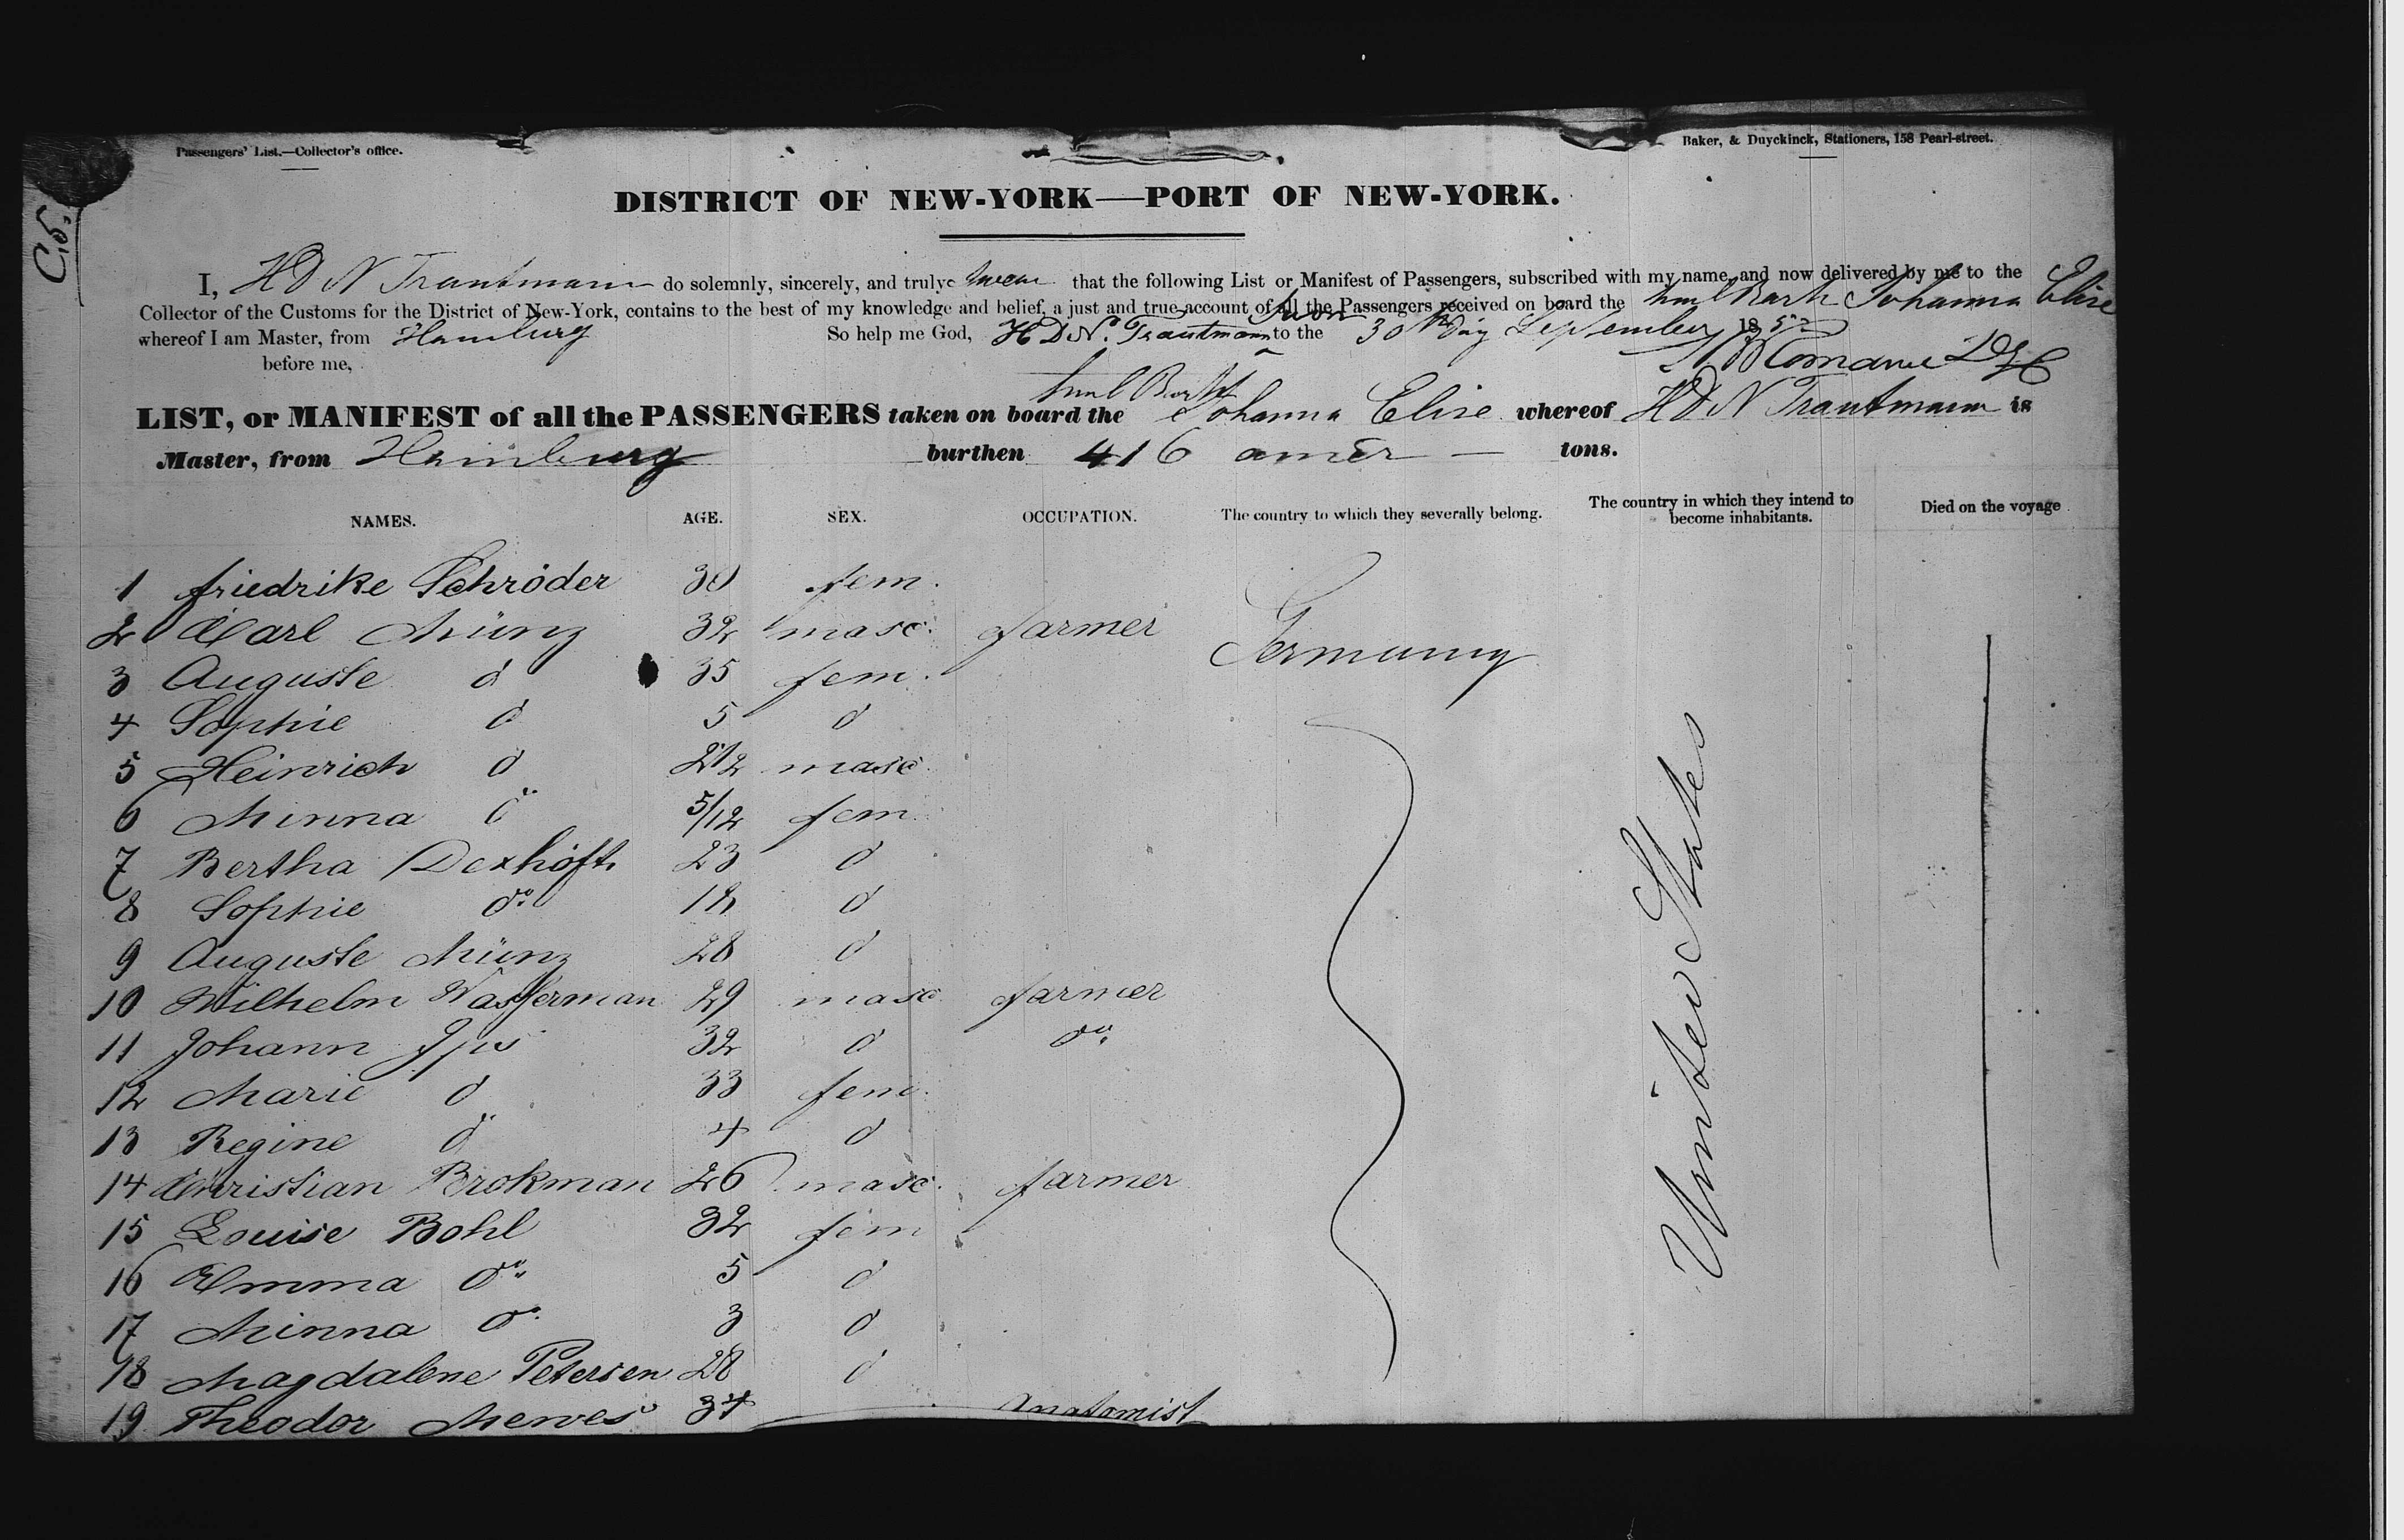 C.5.
Passengers' List.—Collector's office.
Baker, & Duyckinck, Stationers, 158 Pearl-street.
DISTRICT OF NEW-YORK—PORT OF NEW-YORK.
I, H D N Trautmann do solemnly, sincerely, and truly swear that the following List or Manifest of Passengers, subscribed with my name, and now delivered by me to the
Collector of the Customs for the District of New-York, contains to the best of my knowledge and belief, a just and true account of all the Passengers received on board the Bark Johanna Elise
whereof I am Master, from Hamburg So help me God, H D N. Trautmann
Sworn to the 30th day September 1852
before me,
Bark
LIST, or MANIFEST of all the PASSENGERS taken on board the Johanna Elise whereof H D N Trautmann is
Master, from Hamburg burthen 416 amer — tons.
NAMES. AGE. SEX. OCCUPATION. The country to which they severally belong. The country in which they intend to become inhabitants. Died on the voyage
1 friedrike Schröder 30 fem.
2 Carl Münz 32 masc. farmer Germany
3 Auguste d 35 fem.
4 Sophie d 5 d
5 Heinrich d 2 1/2 masc.
6 Minna do 5/12 fem.
7 Bertha Dexhöft 23 d
8 Sophie do 18 d
9 Auguste Münz 28 d
10 Wilhelm Wasserman 29 masc farmer
11 Johann 32 d do
12 Marie d 33 fem.
13 Regine do 4 d
14 Christian Brokman 26 masc. farmer
15 Louise Bohl 32 fem
16 Emma do 5 d
17 Minna do 3 d
18 Magdalene Petersen 28 d
19 Theodor Mewes 34 anatomist
United States